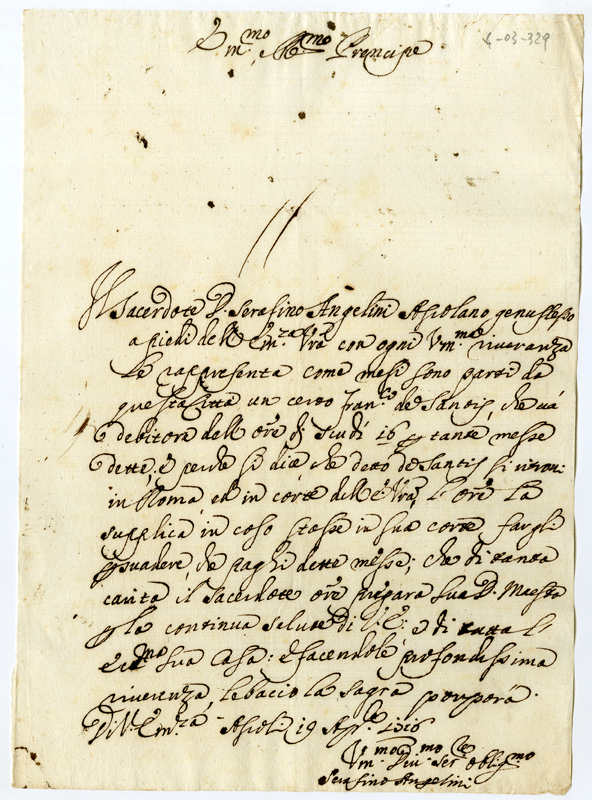 6-03-329
Em.mo R.mo Prencipe
Il Sacerdote D. Serafino Angelini Asolano genuflesso
a piedi dell' Em.za Vra con ogni Um.ma riverenza
Le rappresenta come mesi sono partì da
questa Città un certo Fran.co de Santis che và
debitore dell' Ore di Scudi 16 p tante messe
dette, e perche si dice che detto de Santis si ritrovi
in Roma, et in corte dell' E. Vra, l' Ore La
supplica in caso stasse in sua corte fargli
psuadere che paghi dette messe; che di tanta
carità il Sacerdote Ore pregarà Sua D. Maestà
p la continua salute di V. E: e di tutta l'
Ecc.ma sua Casa: E facendole profondissima
riverenza, le bacio la sagra porpora.
Di V. Em.za Ascoli 19 Apr.le
Um.mo Div.mo Ser.re Oblig.mo
Serafino Angelini